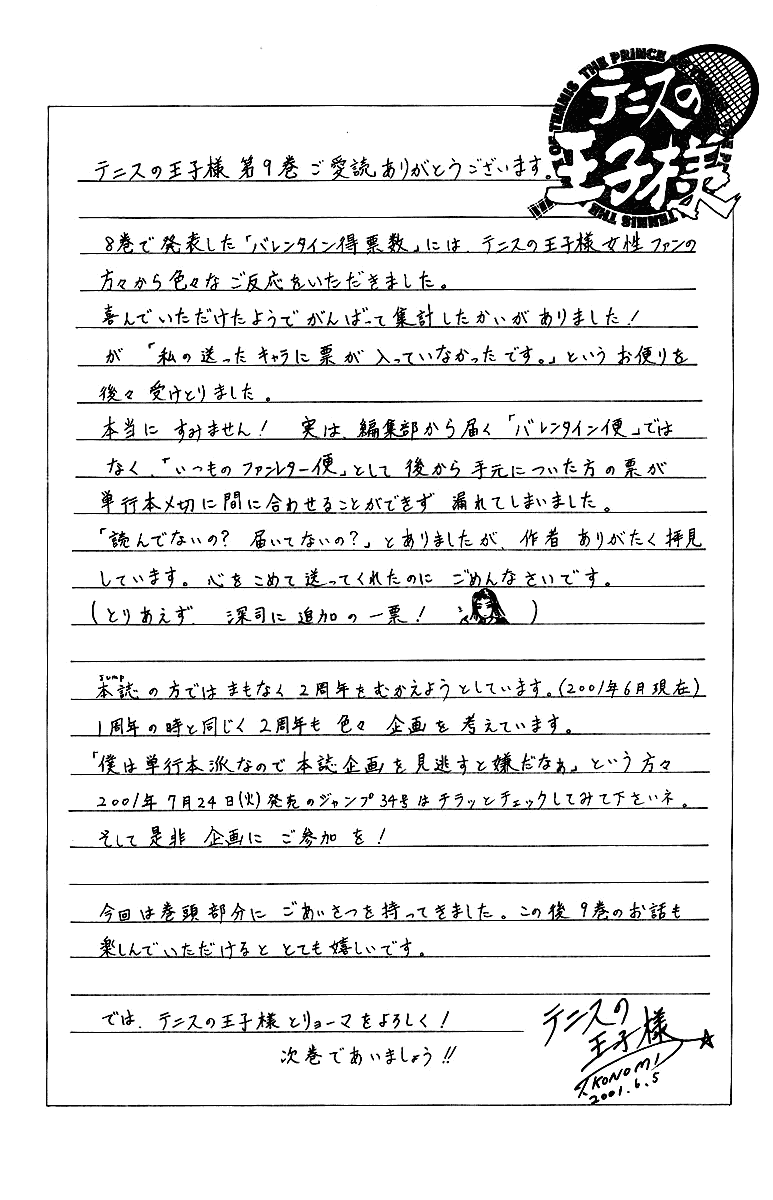 THE PRINCE OF TENNIS THE PRINCE OF TENNIS THE
テニスの
王子様
テニスの王子様 第9巻 ご愛読ありがとうございます。
8巻で発表した「バレンタイン得票数」には、テニスの王子様女性ファンの
方々から色々なご反応をいただきました。
喜んでいただけたようでがんばって集計したかいがありました!
が 「私の送ったキャラに票が入っていなかったです。」というお便りを
後々受けとりました。
本当に すみません! 実は、編集部から届く「バレンタイン便」では
なく、「いつものファンレター便」として後から手元についた方の票が
単行本〆切に間に合わせることができず 漏れてしまいました。
「読んでないの? 届いてないの?」とありましたが、作者 ありがたく拝見
しています。心をこめて送ってくれたのに ごめんなさいです。
(とりあえず 深司に追加の一票! )
jump
本誌の方ではまもなく2周年をむかえようとしています。(2001年6月現在)
1周年の時と同じく2周年も色々 企画を考えています。
「僕は単行本派なので本誌企画を見逃すと嫌だなぁ」という方々
2001年7月24日(火)発売のジャンプ34号はチラッとチェックしてみて下さいネ。
そして是非 企画に ご参加を!
今回は巻頭部分に ごあいさつを持ってきました。この後9巻のお話も
楽しんでいただけると とても嬉しいです。
では、テニスの王子様とリョーマをよろしく!
次巻であいましょう!!
テニスの
王子様
T.KONOMI
2001.6.5